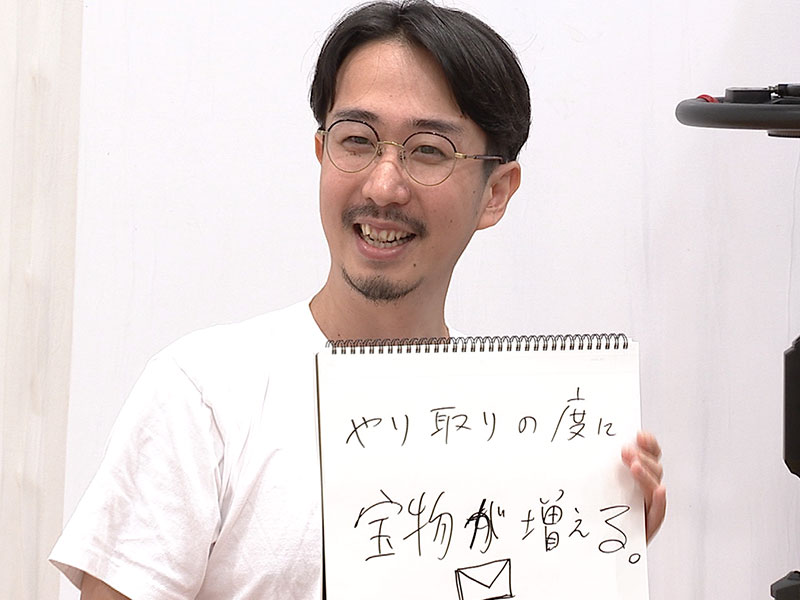 やり取りの度に
宝物が増える。